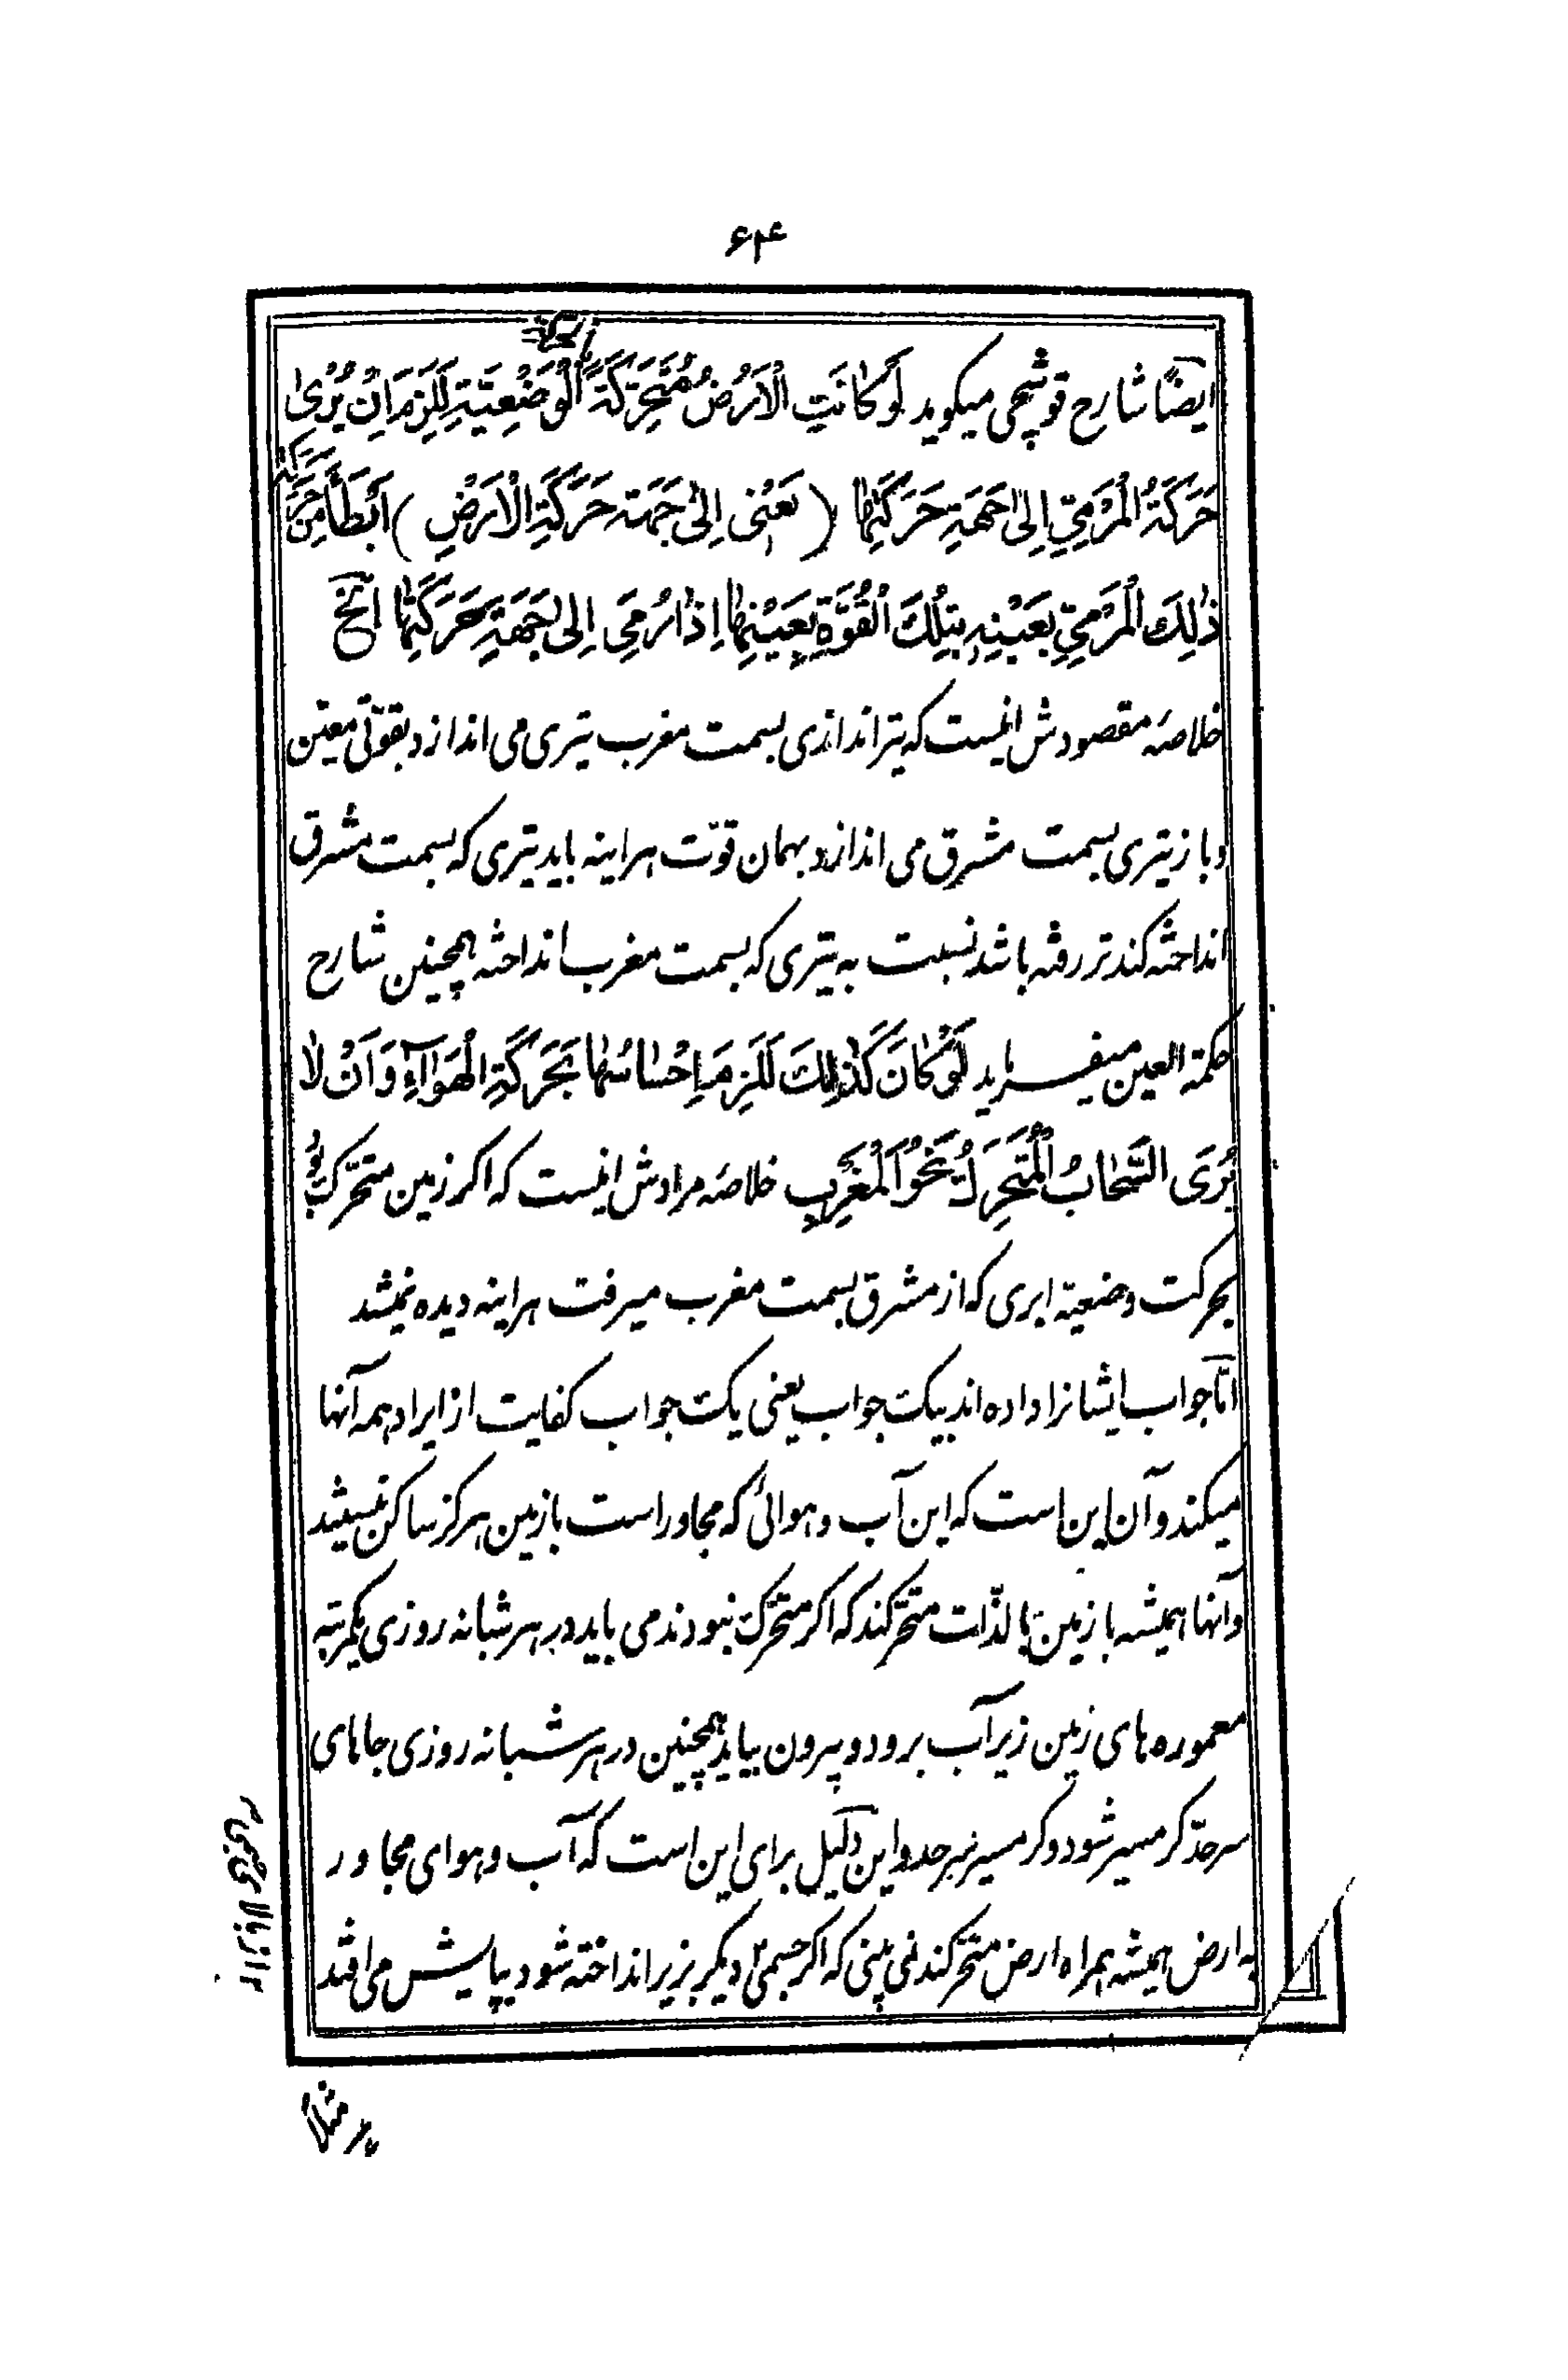 ۶۴
ایضاً شارح قوشچی میکوید لَوْ کٰانَتِ الْاَرْضُ مُتَحَرِّکَةً الْوَضْعِیَّةِ لَلَزِمَ اَنْ یُرٰی
بالحرکة
حَرَکَةُ الْمَرْمِیِّ اِلیٰ جَهَةِ حَرَکَتِهٰا (یَعْنی اِلیٰ جَهَة حَرَکَةِ الْاَرَضِ) اَبْطَأَ مِنْ حَرَکَةِ
ذٰلِكَ الْمَرْمِیِّ بِعَیْنِهِ بِتِلْكَ الْقُوَّةِ بِعَیْنِهٰا اِذٰا رُمِیَ اِلی جَهَةِ حَرَکَتِهٰا الخ
خلاصهٔ مقصودش اینست که تیراندازی بسمت مغرب تیری می اندازد بقوّتی معیّن
و باز تیری بسمت مشرق می اندازد بهمان قوّت هراینه باید تیری که بسمت مشرق
انداخته کندتر رفته باشد نسبت به تیری که بسمت مغرب انداخته همچنین شارح
حکمة العین میفرماید لَوْ کٰانَ کَذٰلِكَ لَلَزِمَ اِحْسٰاسُهٰا بِحَرَکَةِ الْهَوٰآءِ وَ اَنْ لٰا
یُرَی السَّحٰابُ الْمُتَحَرِّكُ نَحْوَ الْمَغْرِبِ خلاصهٔ مرادش اینست که اکر زمین متحرّک بود
بحرکت وضعیّه ابری که از مشرق بسمت مغرب میرفت هراینه دیده نمیشد
امّا جواب ایشانرا داده اند بیک جواب یعنی یک جواب کفایت از ایراد همه آنها
میکند و آن این است که این آب و هوائی که مجاور است با زمین هرکز ساکن نیستند
و آنها همیشه با زمین بالذّات متحرّکند که اکر متحرّک نبودند می باید در هر شبانه روزی یکمرتبه
معموره های زمین زیر آب برود و بیرون بیاید همچنین در هر شبانه روزی جاهای
سرحدّ کرمسیر شود و کرمسیر سرحد و این دلیل برای این است که آب و هوای مجاور
به ارض همیشه همراه ارض متحرّکند نمی بینی که اکر جسمی از دیکر بزیر انداخته شود بپایش می افتد
هجری ۱۲۹۸
مثلا